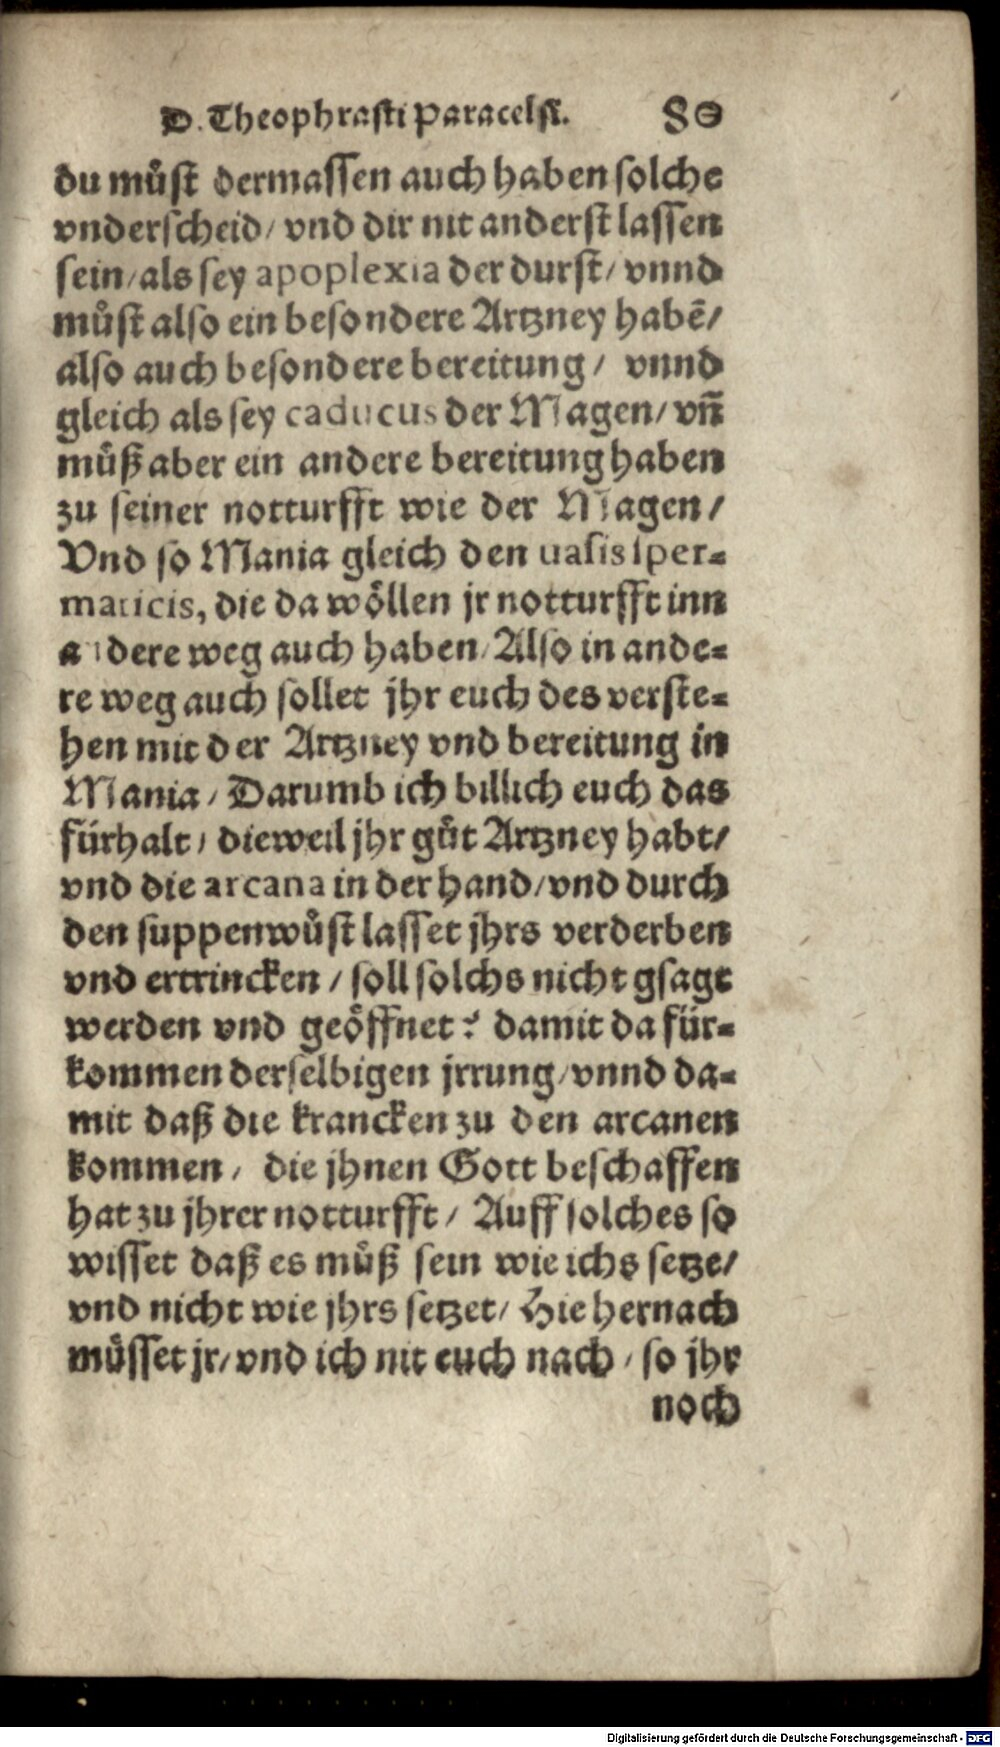 D. Theophrasti Paracelsi. 80
du můst dermassen auch haben solche
vnderscheid/ vnd dir nit anderst lassen
sein/ als sey apoplexia der durst/ vnnd
můst also ein besondere Artzney habē/
also auch besondere bereitung/ vnnd
gleich als sey caducus der Magen/ vn̄
můß aber ein andere bereitung haben
zu seiner notturfft wie der Magen/
Vnd so Mania gleich den uasis sper-
maticis, die da wöllen jr notturfft inn
andere weg auch haben/ Also in ande-
re weg auch sollet jhr euch des verste-
hen mit der Artzney vnd bereitung in
Mania/ Darumb ich billich euch das
fürhalt/ dieweil jhr gůt Artzney habt/
vnd die arcana in der hand/ vnd durch
den suppenwůst lasset jhrs verderben
vnd ertrincken/ soll solchs nicht gsagt
werden vnd geöffnet? damit da für-
kommen derselbigen jrrung/ vnnd da-
mit daß die krancken zu den arcanen
kommen/ die jhnen Gott beschaffen
hat zu jhrer notturfft/ Auff solches so
wisset daß es můß sein wie ichs setze/
vnd nicht wie jhrs setzet/ Hie hernach
müsset jr/ vnd ich nit euch nach/ so jhr
noch
Digitalisierung gefördert durch die Deutsche Forschungsgemeinschaft - DFG